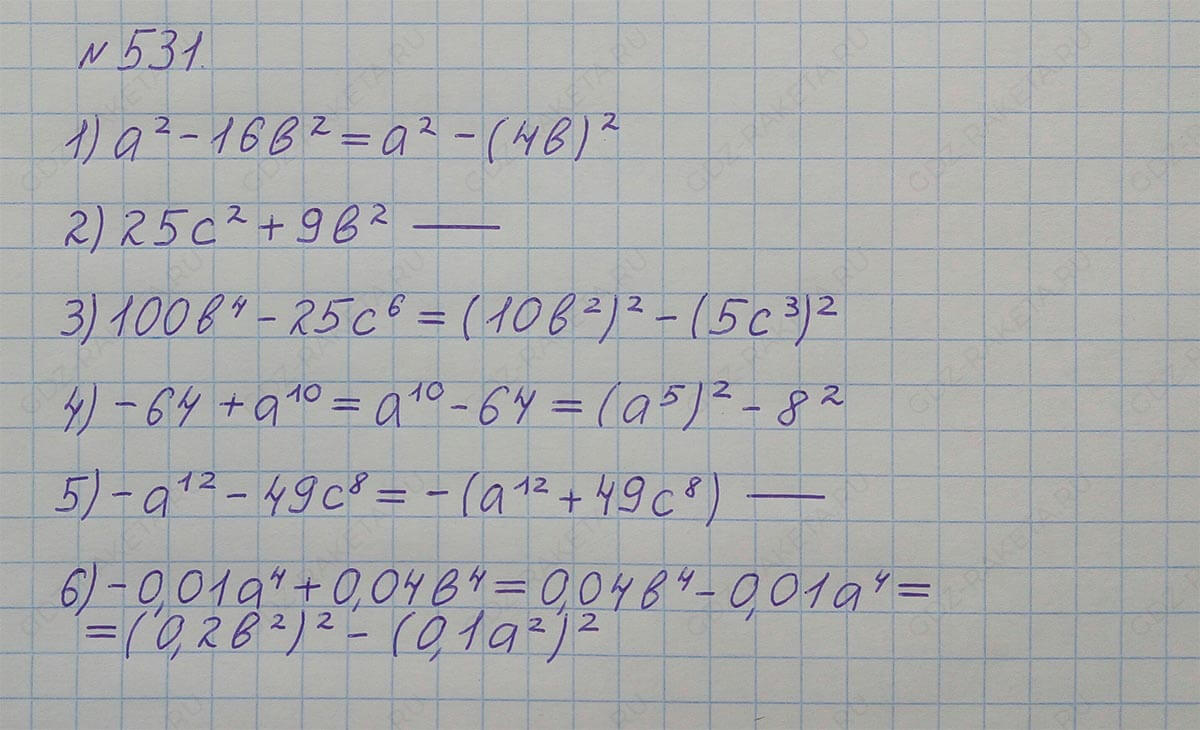 № 531.
1) a² - 16в² = a² - (4в)²
2) 25c² + 9в² —
3) 100в⁴ - 25c⁶ = (10в²)² - (5c³)²
4) -64 + a¹⁰ = a¹⁰ - 64 = (a⁵)² - 8²
5) -a¹² - 49c⁸ = -(a¹² + 49c⁸) —
6) -0,01a⁴ + 0,04в⁴ = 0,04в⁴ - 0,01a⁴ =
= (0,2в²)² - (0,1a²)²
GDZ-RAKETA.RU